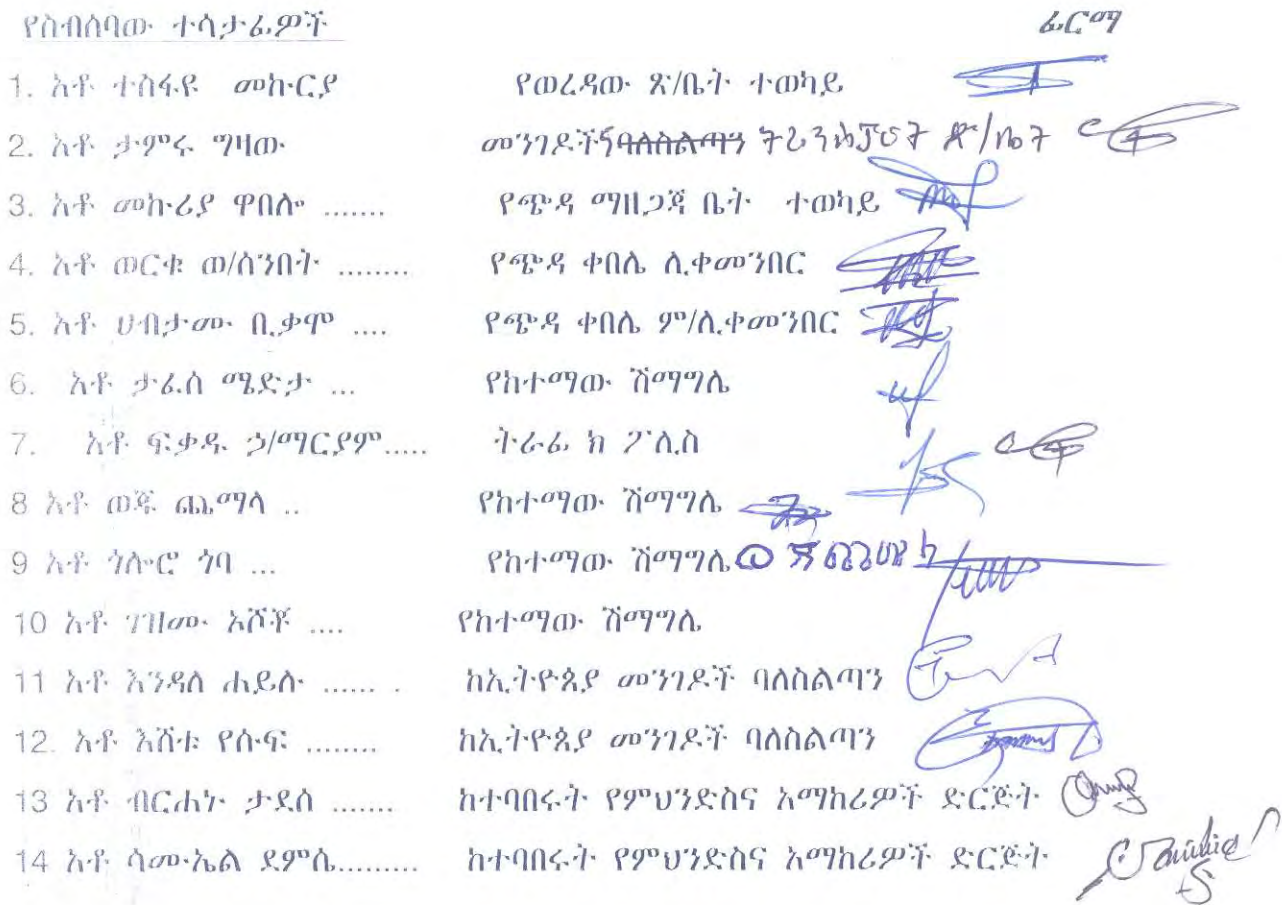 የስብሰባው ተሳታፊዎች ፊርማ
1. አቶ ተስፋዩ መኩርያ የወረዳው ጽ/ቤት ተወካይ
2. አቶ ታምሩ ግዛው መንገዶችና ባለስልጣን ትራንስፖርት ጽ/ቤት
3. አቶ መኩሪያ ዋበሎ ....... የጭዳ ማዘጋጃ ቤት ተወካይ
4. አቶ ወርቁ ወ/ሰንበት ........ የጭዳ ቀበሌ ሊቀመንበር
5. አቶ ሀብታሙ ቢቃሞ .... የጭዳ ቀበሌ ም/ሊቀመንበር
6. አቶ ታፈሰ ሜድታ ... የከተማው ሽማግሌ
7. አቶ ፍቃዱ ኃ/ማርያም..... ትራፊ ክ ፖሊስ
8 አቶ ወጁ ጨማላ .. የከተማው ሽማግሌ
9 አቶ ጎሎሮ ጎባ ... የከተማው ሽማግሌ
10 አቶ ገዝሙ አሾቾ .... የከተማው ሽማግሌ
11 አቶ እንዳለ ሐይሉ ...... . ከኢትዮጲያ መንገዶች ባለስልጣን
12. አቶ እሸቱ የሱፍ ........ ከኢትዮጲያ መንገዶች ባለስልጣን
13 አቶ ብርሐኑ ታደሰ ....... ከተባበሩት የምህንድስና አማከሪዎች ድርጅት
14 አቶ ሳሙኤል ደምሴ......... ከተባበሩት የምህንድስና አማከሪዎች ድርጅት